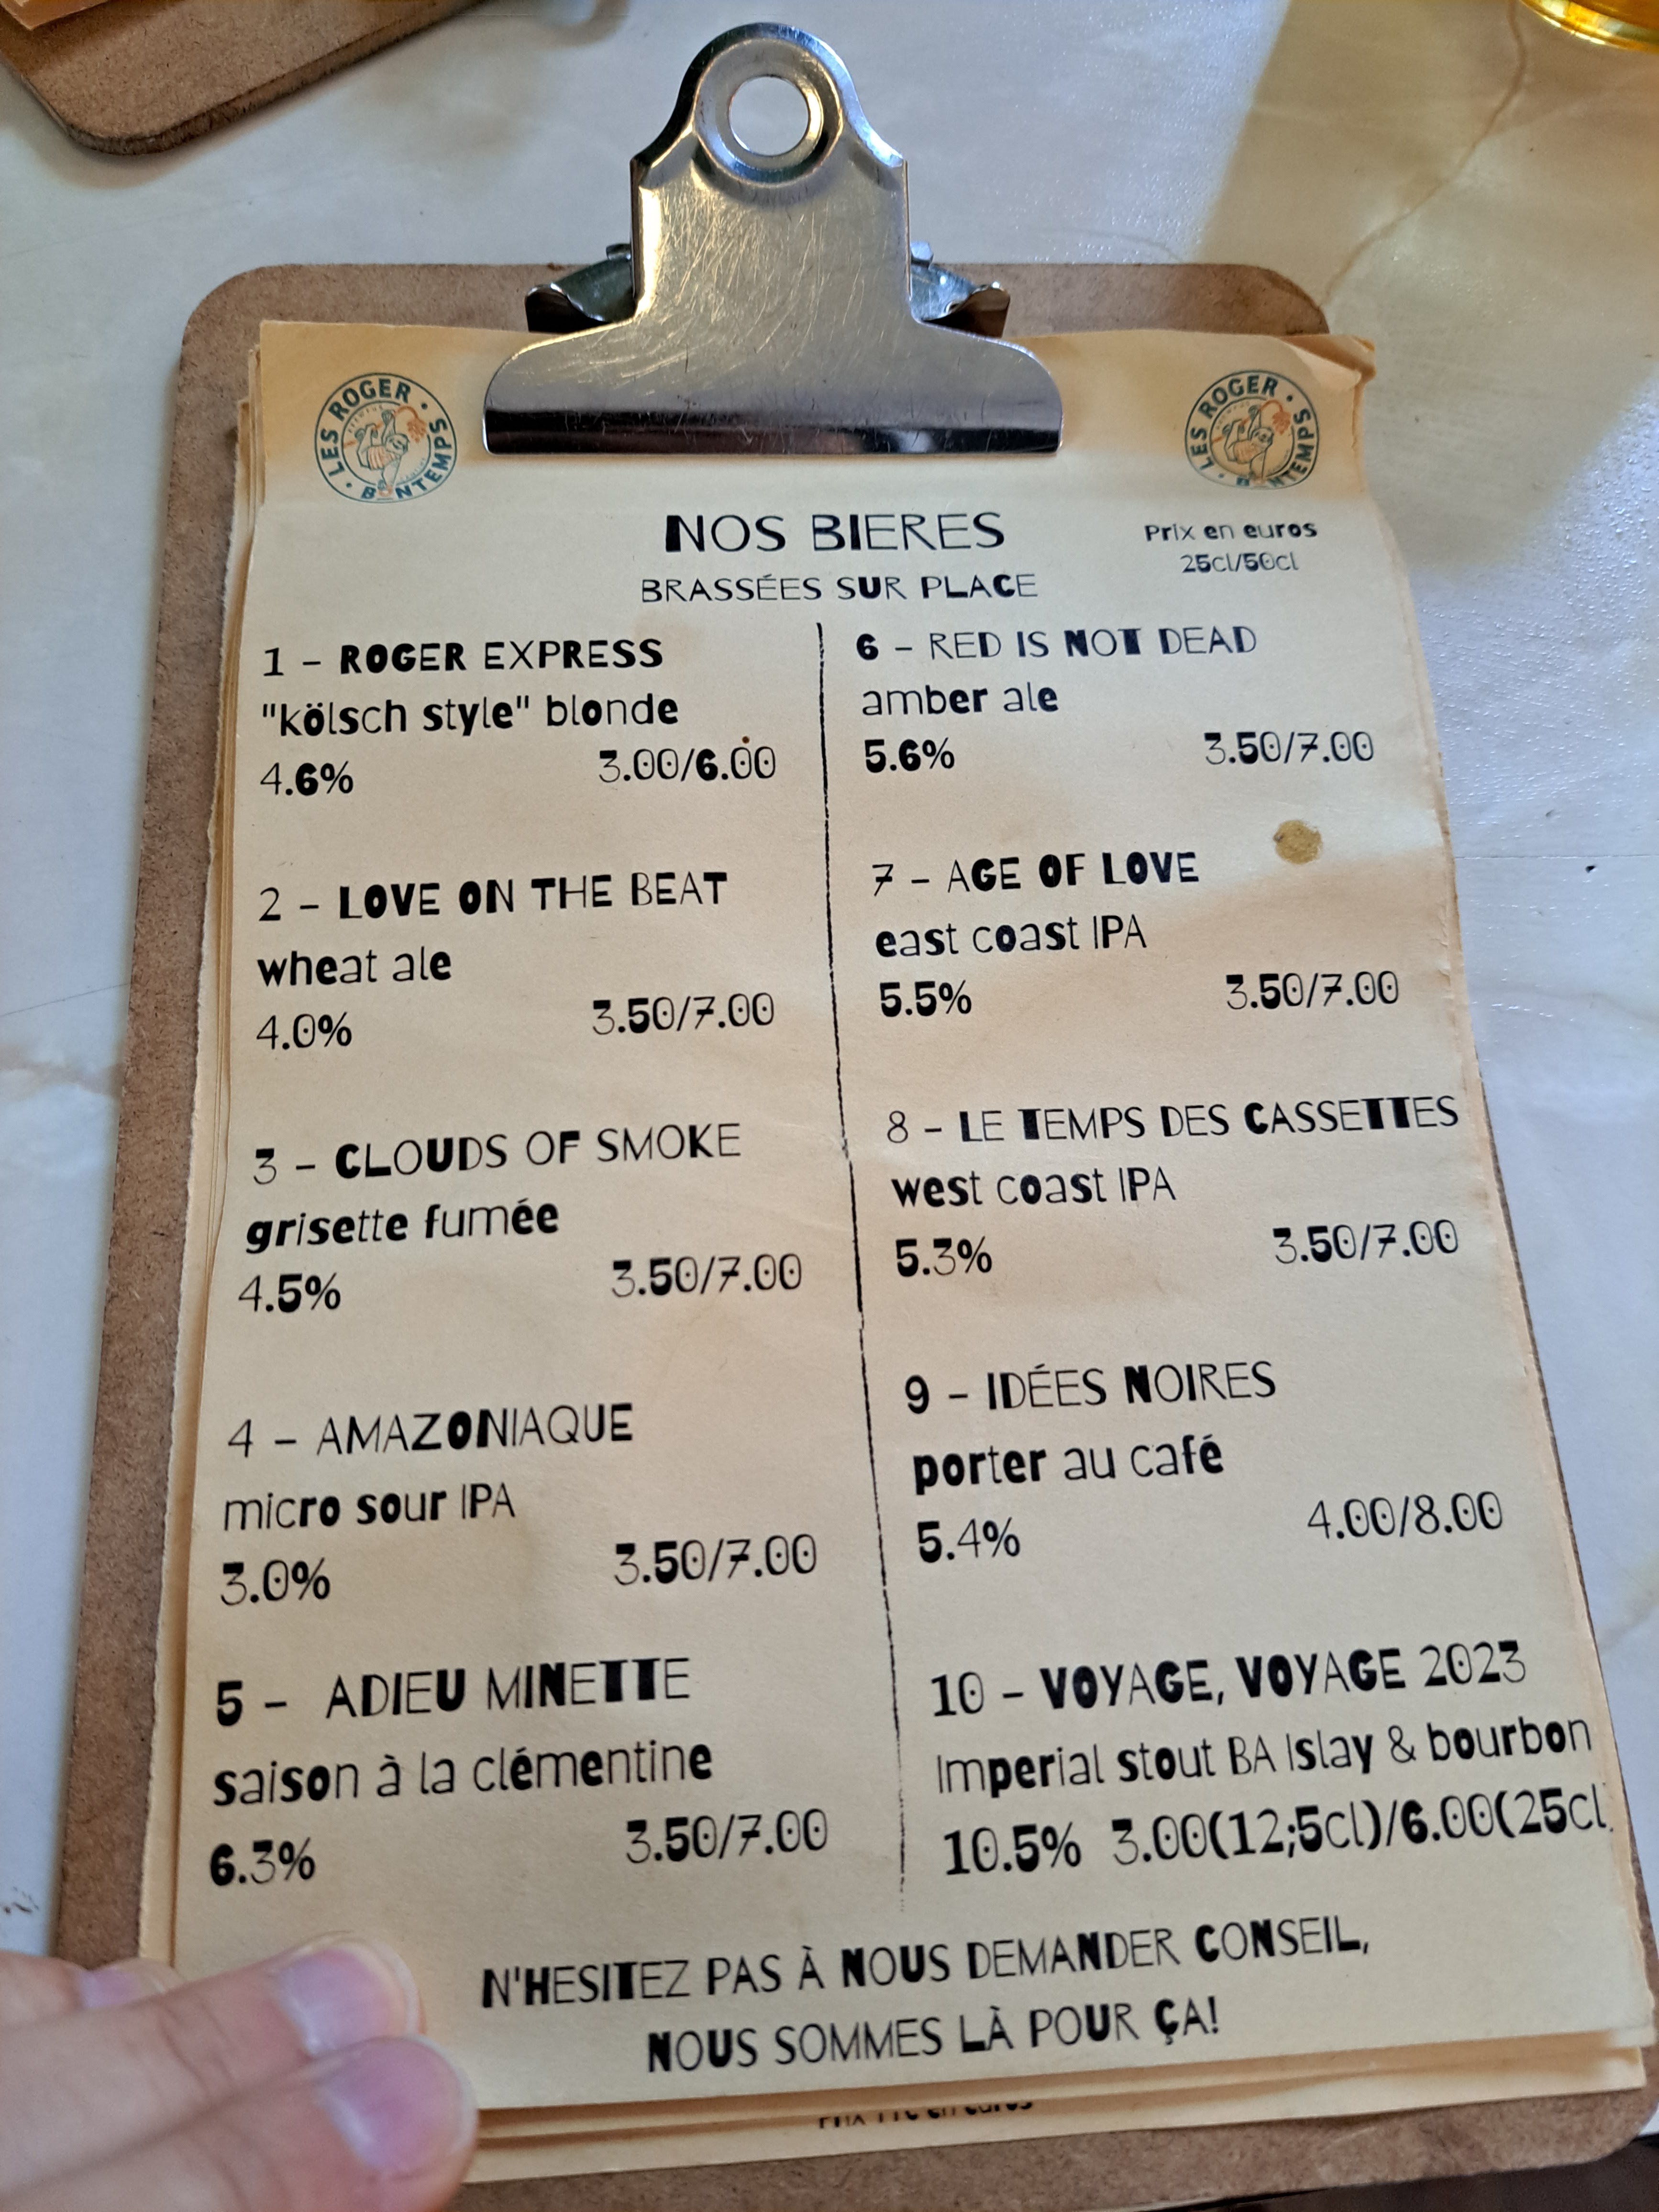 LES ROGER · BONTEMPS ·
LES ROGER · BONTEMPS ·
NOS BIERES
BRASSÉES SUR PLACE
Prix en euros
25cl/50cl
1 - ROGER EXPRESS
"kölsch style" blonde
4.6% 3.00/6.00
2 - LOVE ON THE BEAT
wheat ale
4.0% 3.50/7.00
3 - CLOUDS OF SMOKE
grisette fumée
4.5% 3.50/7.00
4 - AMAZONIAQUE
micro sour IPA
3.0% 3.50/7.00
5 - ADIEU MINETTE
saison à la clémentine
6.3% 3.50/7.00
6 - RED IS NOT DEAD
amber ale
5.6% 3.50/7.00
7 - AGE OF LOVE
east coast IPA
5.5% 3.50/7.00
8 - LE TEMPS DES CASSETTES
west coast IPA
5.3% 3.50/7.00
9 - IDÉES NOIRES
porter au café
5.4% 4.00/8.00
10 - VOYAGE, VOYAGE 2023
Imperial stout BA Islay & bourbon
10.5% 3.00(12;5cl)/6.00(25cl
N'HESITEZ PAS À NOUS DEMANDER CONSEIL,
NOUS SOMMES LÀ POUR ÇA!
Prix TTC en euros